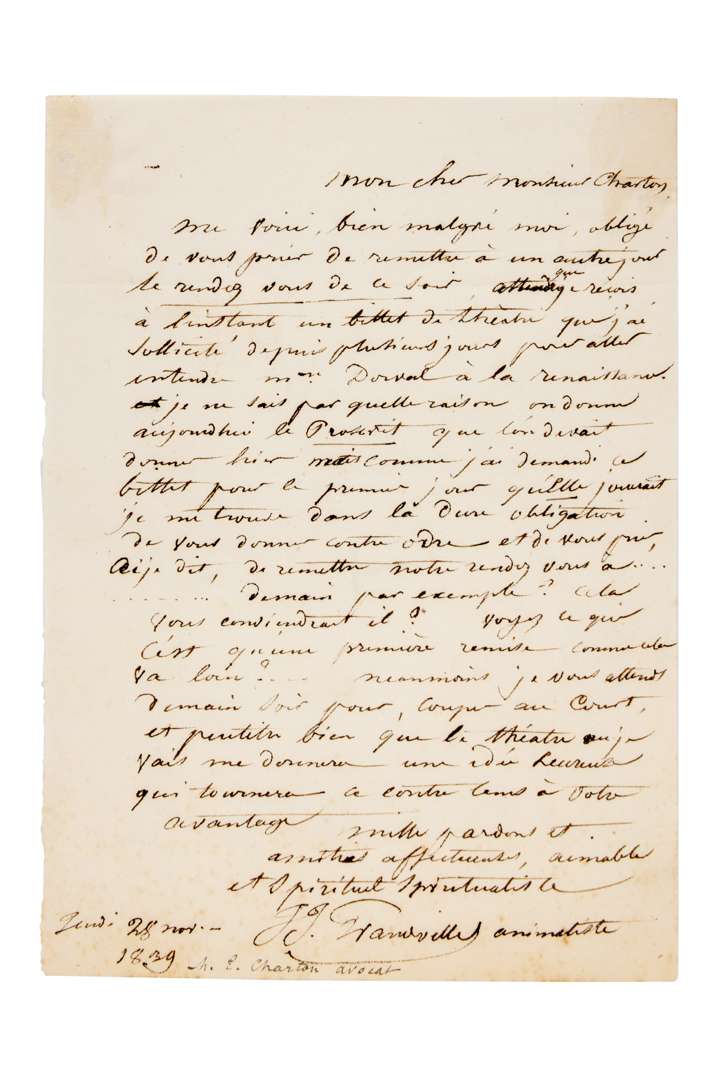 mon cher monsieur Charton,
me voici, bien malgré moi, obligé
de vous prier de remettre à un autre jour
le rendez vous de ce soir, attendu que je reçois
à l'instant un billet de théâtre que j'ai
sollicité depuis plusieurs jours pour aller
entendre mme Dorval à la renaissance.
je ne sais par quelle raison on donne
aujourdhui le Proscrit que l'on devait
donner hier mais comme j'ai demandé ce
billet pour le premier jour qu'Elle jouerait
je me trouve dans la Dure obligation
de vous donner contre ordre et de vous prier,
ai je dit, de remettre notre rendez vous à ....
......... demain par exemple? cela
vous conviendrait il? voyez ce que
C'est qu'une première remise comme cela
va loin?.... néanmoins je vous attends
demain soir pour, couper au Court,
et peutêtre bien que le théâtre où je
vais me donnera une idée heureuse
qui tournera ce contre tems à votre
avantage
mille pardons et
amitiés affectueuses, aimable
et Spirituel Spiritualiste
J.J. Grandville animaliste
Jeudi 28 nov.
1839
M. E. Charton avocat